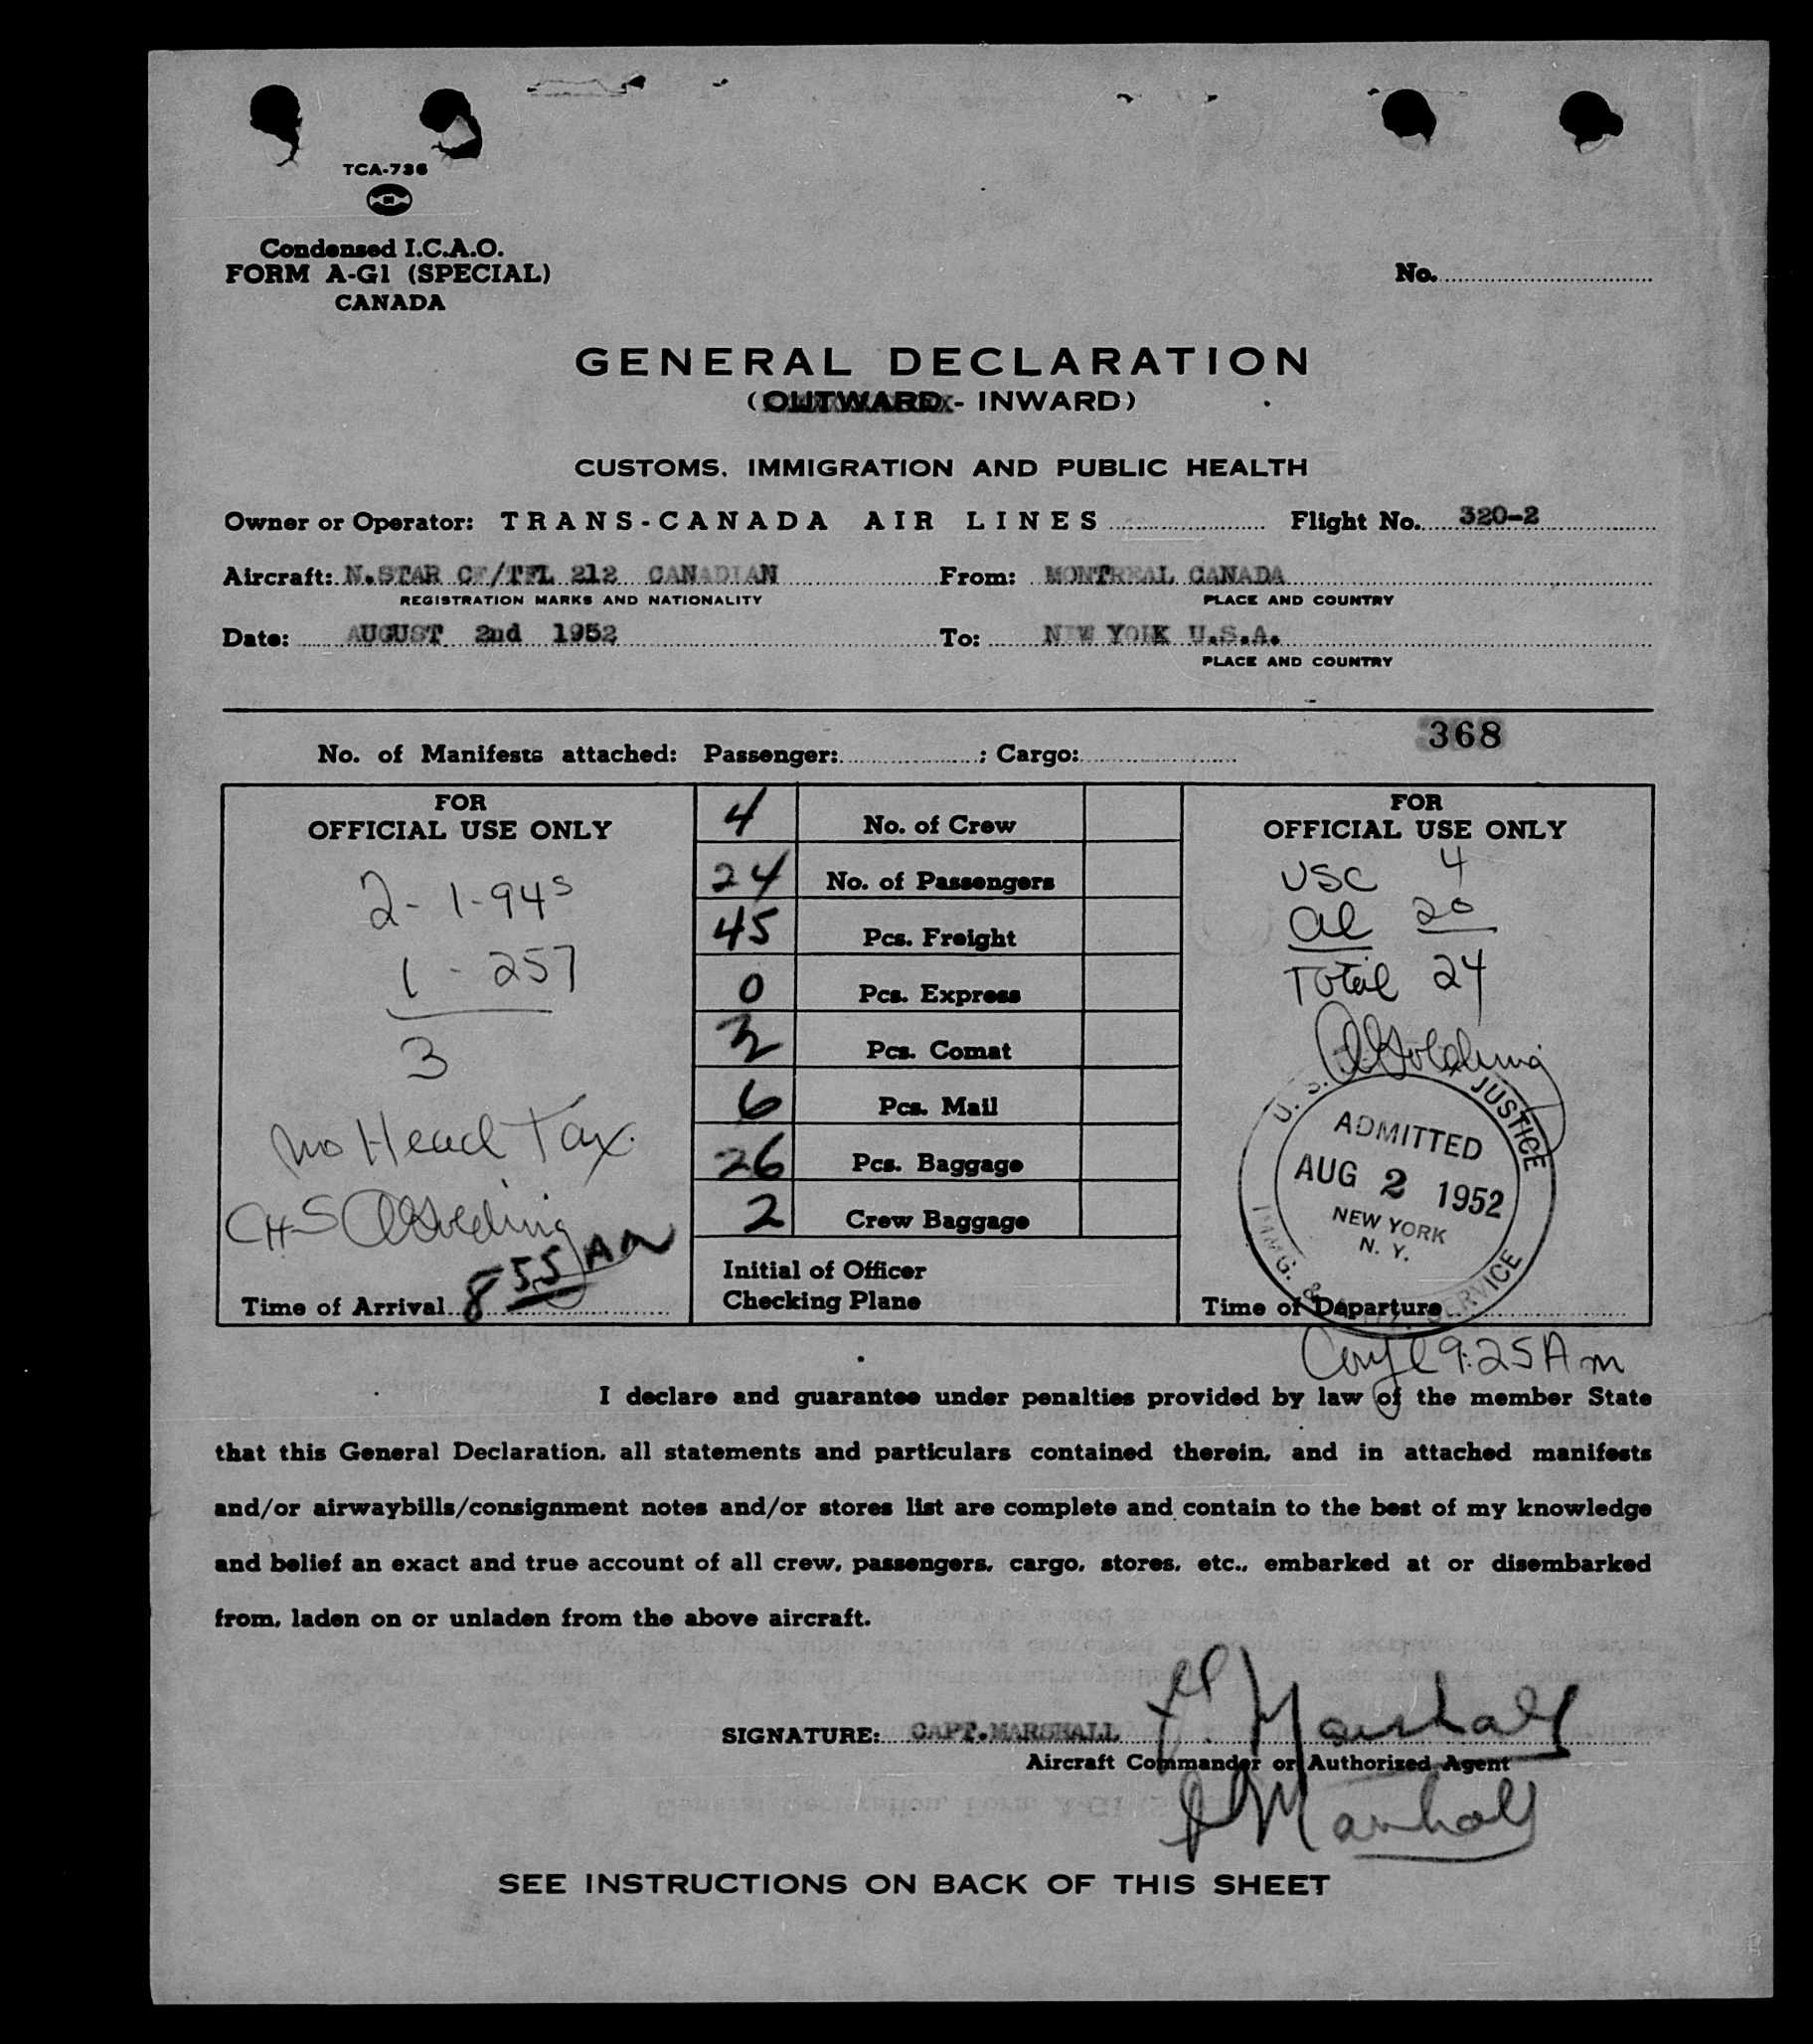 TCA-736
Condensed I.C.A.O.
FORM A-G1 (SPECIAL)
CANADA
No.
GENERAL DECLARATION
(OUTWARD - INWARD)
CUSTOMS, IMMIGRATION AND PUBLIC HEALTH
Owner or Operator: TRANS-CANADA AIR LINES Flight No. 320-2
Aircraft: N.STAR CF/TFL 212 CANADIAN From: MONTREAL CANADA
REGISTRATION MARKS AND NATIONALITY PLACE AND COUNTRY
Date: AUGUST 2nd 1952 To: NEW YORK U.S.A.
PLACE AND COUNTRY
368
No. of Manifests attached: Passenger: ; Cargo:
FOR
OFFICIAL USE ONLY
2- 1-94s
1 - 257
3
No Head Tax.
CHS
Time of Arrival 855 AM
4 No. of Crew
24 No. of Passengers
45 Pcs. Freight
0 Pcs. Express
Pcs. Comat
6 Pcs. Mail
26 Pcs. Baggage
2 Crew Baggage
Initial of Officer
Checking Plane
FOR
OFFICIAL USE ONLY
USC 4
al 20
Total 24
U. S. JUSTICE
ADMITTED
AUG 2 1952
NEW YORK
N. Y.
IMMG. & SERVICE
Time of Departure
9:25 AM
I declare and guarantee under penalties provided by law of the member State
that this General Declaration, all statements and particulars contained therein, and in attached manifests
and/or airwaybills/consignment notes and/or stores list are complete and contain to the best of my knowledge
and belief an exact and true account of all crew, passengers, cargo, stores, etc., embarked at or disembarked
from, laden on or unladen from the above aircraft.
SIGNATURE: CAPT.MARSHALL Marshall
Aircraft Commander or Authorized Agent
Marshall
SEE INSTRUCTIONS ON BACK OF THIS SHEET